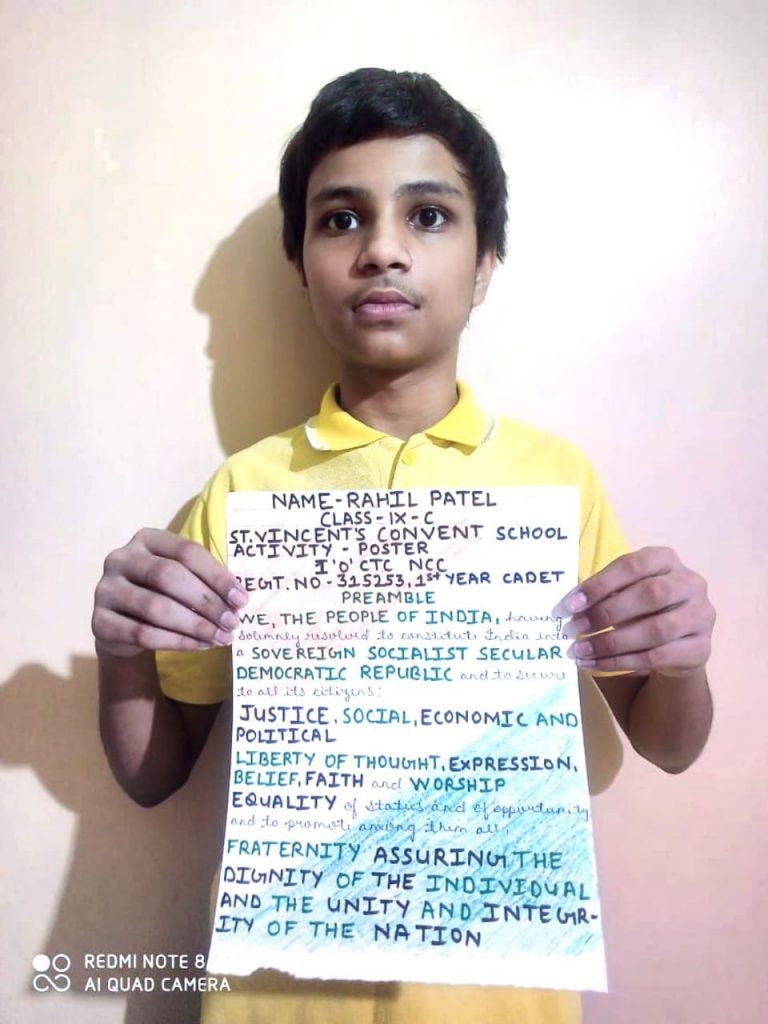 NAME-RAHIL PATEL
CLASS-IX-C
ST.VINCENT'S CONVENT SCHOOL
ACTIVITY - POSTER
I 'O' CTC NCC
REGT.NO-315253,1st YEAR CADET
PREAMBLE
WE, THE PEOPLE OF INDIA, having
solimnley resolved to constitute India into
a SOVEREIGN SOCIALIST SECULAR
DEMOCRATIC REPUBLIC and to secure
to all its citizens:
JUSTICE, SOCIAL, ECONOMIC AND
POLITICAL
LIBERTY OF THOUGHT, EXPRESSION,
BELIEF, FAITH and WORSHIP
EQUALITY of status and of oppurtunity
and to promote among them all;
FRATERNITY ASSURING THE
DIGNITY OF THE INDIVIDUAL
AND THE UNITY AND INTEGR-
ITY OF THE NATION
REDMI NOTE 8
AI QUAD CAMERA